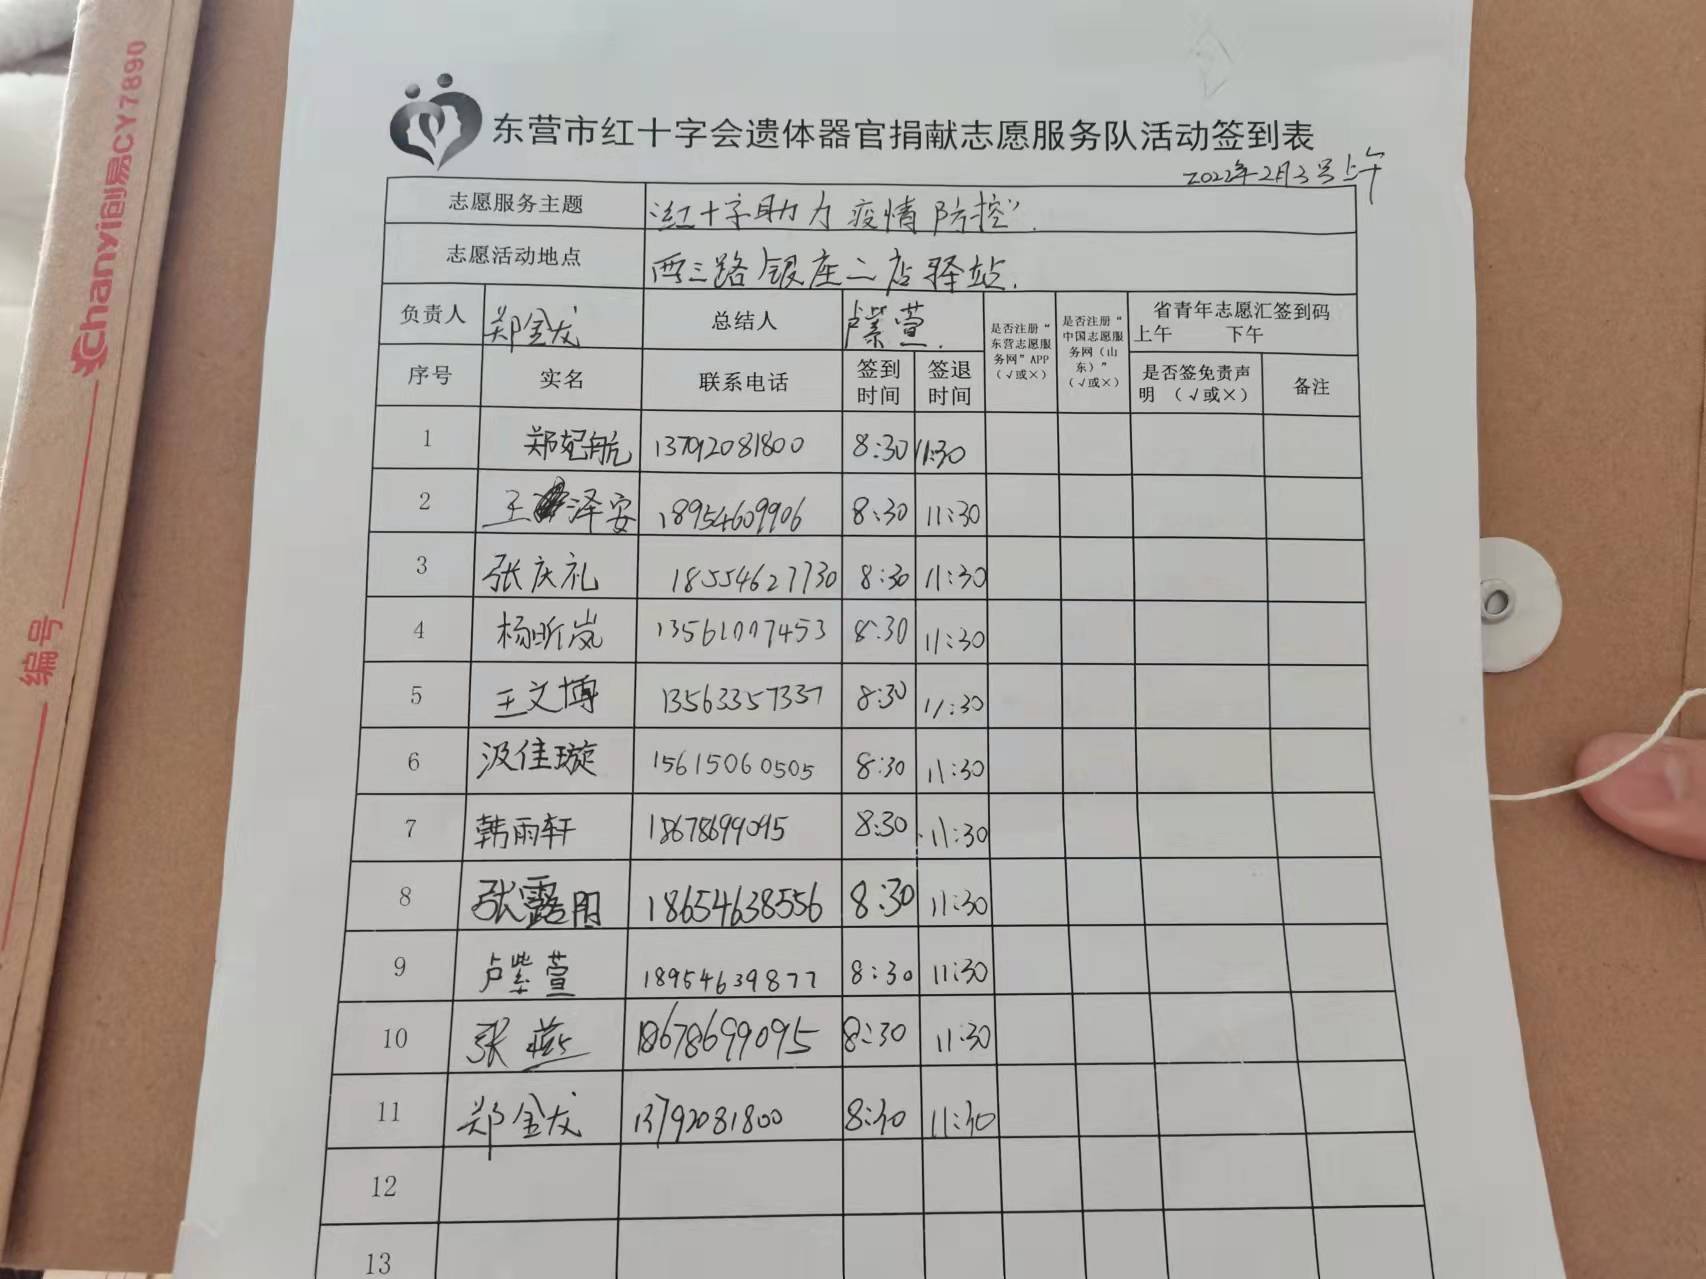 chanyi创易CY7890
编号
东营市红十字会遗体器官捐献志愿服务队活动签到表
2022年2月3号上午
志愿服务主题 "红十字助力疫情防控".
志愿活动地点 西三路银座二店驿站.
负责人 郑金龙 总结人 卢紫萱. 是否注册"东营志愿服务网"APP（√或×） 是否注册"中国志愿服务网（山东）"（√或×） 省青年志愿汇签到码 上午 下午
序号 实名 联系电话 签到时间 签退时间 是否签免责声明（√或×） 备注
1 郑妃航 13792081800 8:30 11:30
2 王泽安 18954609906 8:30 11:30
3 张庆礼 18554627730 8:30 11:30
4 杨昕岚 13561007453 8:30 11:30
5 王文博 13563357337 8:30 11:30
6 汲佳璇 15615060505 8:30 11:30
7 韩雨轩 18678699095 8:30 11:30
8 张露月 18654638556 8:30 11:30
9 卢紫萱 18954639877 8:30 11:30
10 张燕 18678699095 8:30 11:30
11 郑金龙 13792081800 8:30 11:30
12
13